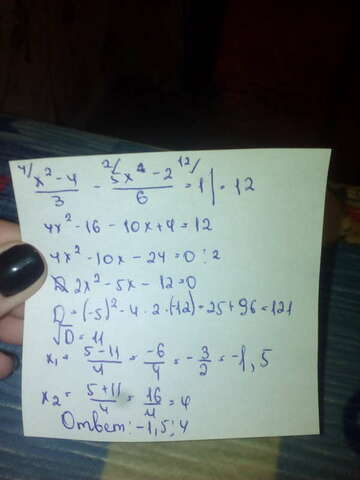 4/ x² - 4 / 3 - 2/ 5x - 2 / 6 = 12/ 1 | · 12
4x² - 16 - 10x + 4 = 12
4x² - 10x - 24 = 0 : 2
2x² - 5x - 12 = 0
D = (-5)² - 4 · 2 · (-12) = 25 + 96 = 121
√D = 11
x₁ = 5-11 / 4 = -6 / 4 = - 3 / 2 = -1,5
x₂ = 5+11 / 4 = 16 / 4 = 4
Ответ: -1,5; 4